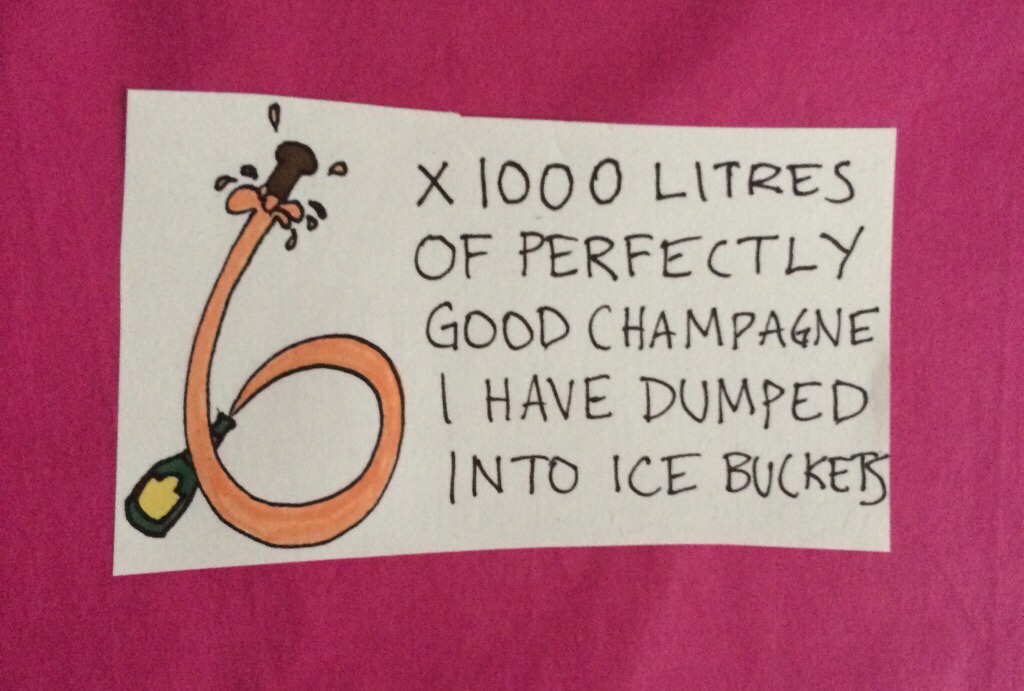 6 X 1000 LITRES
OF PERFECTLY
GOOD CHAMPAGNE
I HAVE DUMPED
INTO ICE BUCKETS